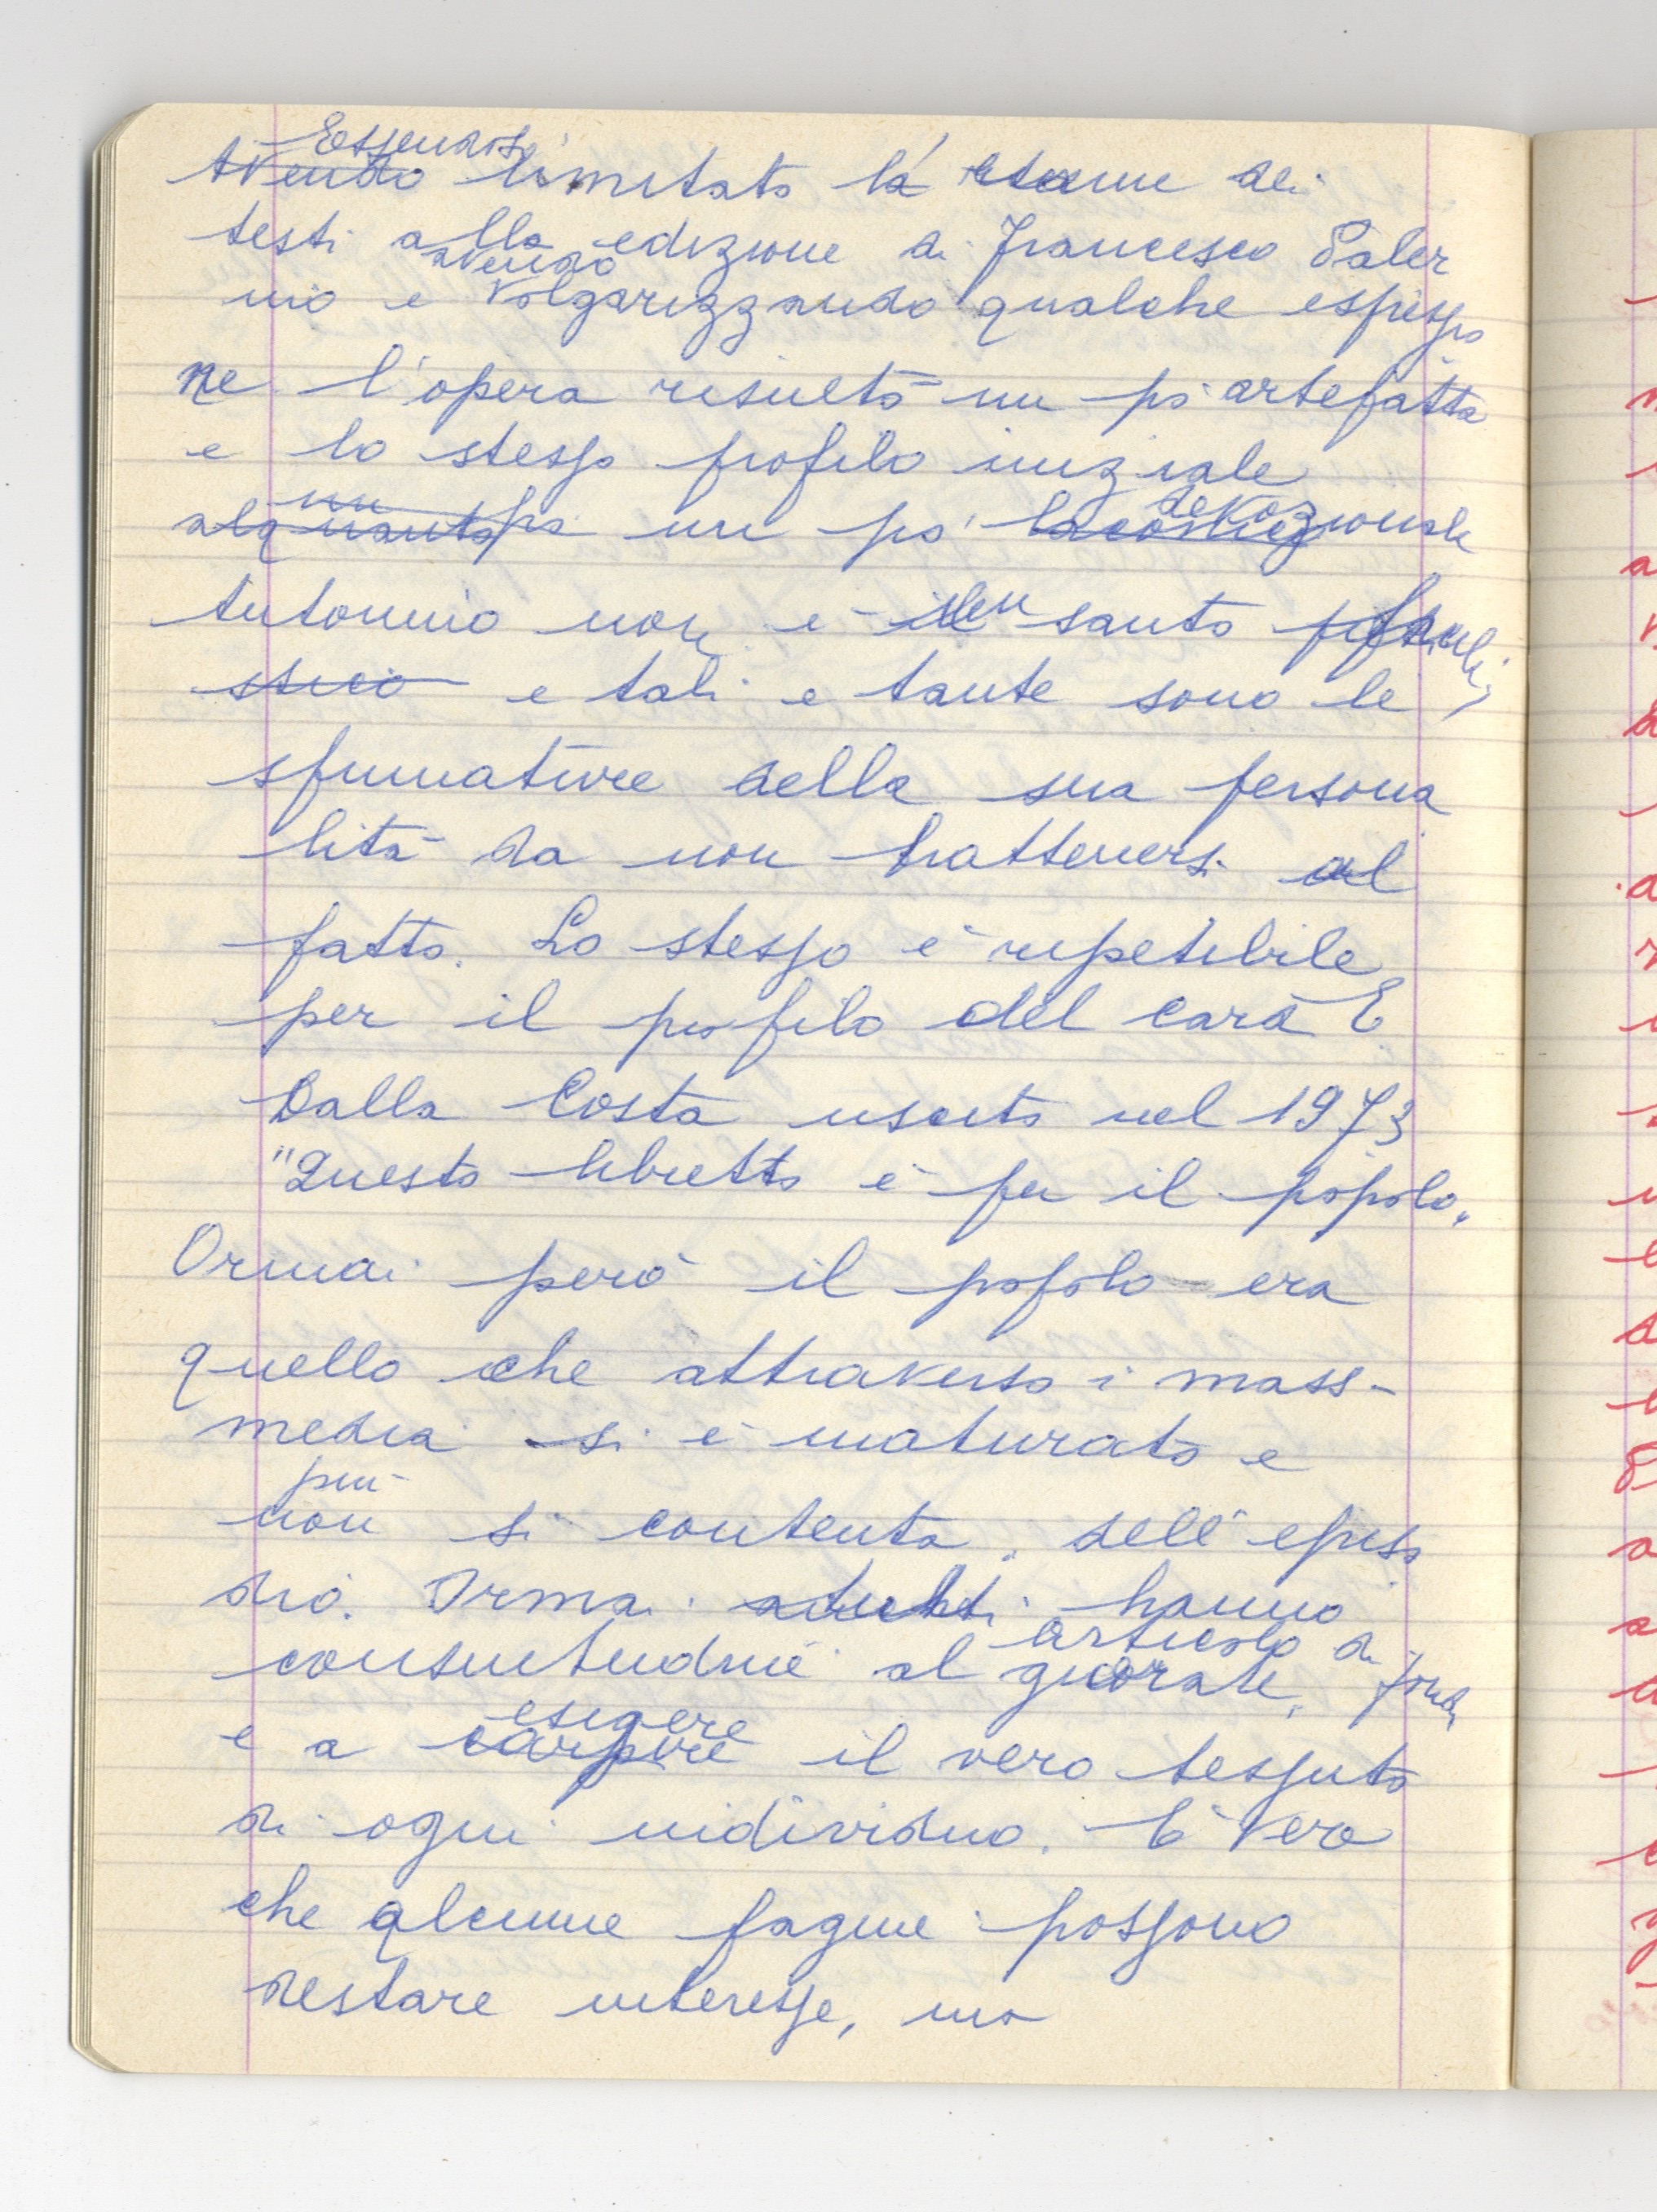 Essendosi
Avendo limitato la' esame dei
testi alla edizione di Francesco Paler
avendo
mo e volgarizzando qualche espressio
ne l'opera risultò un pò artefatta
e lo stesso profilo iniziale
un pò devozionale
alquanto un po'
Antonino non è un santo
e tali e tante sono le
sfumature della sua persona
lità da non trattenersi al
fatto. Lo stesso è ripetibile
per il profilo del card E.
Dalla Costa uscito nel 1973
"Questo libretto è per il popolo.
Ormai però il popolo era
quello che attraverso i mass-
media si è maturato e
più
non si contenta dell'episo
dio. Ormai adulti hanno
articolo di fond,
consuetudine al giornale,
esigere
e a carpire il vero tessuto
di ogni individuo. E' vero
che alcune pagine possono
destare interesse, ma